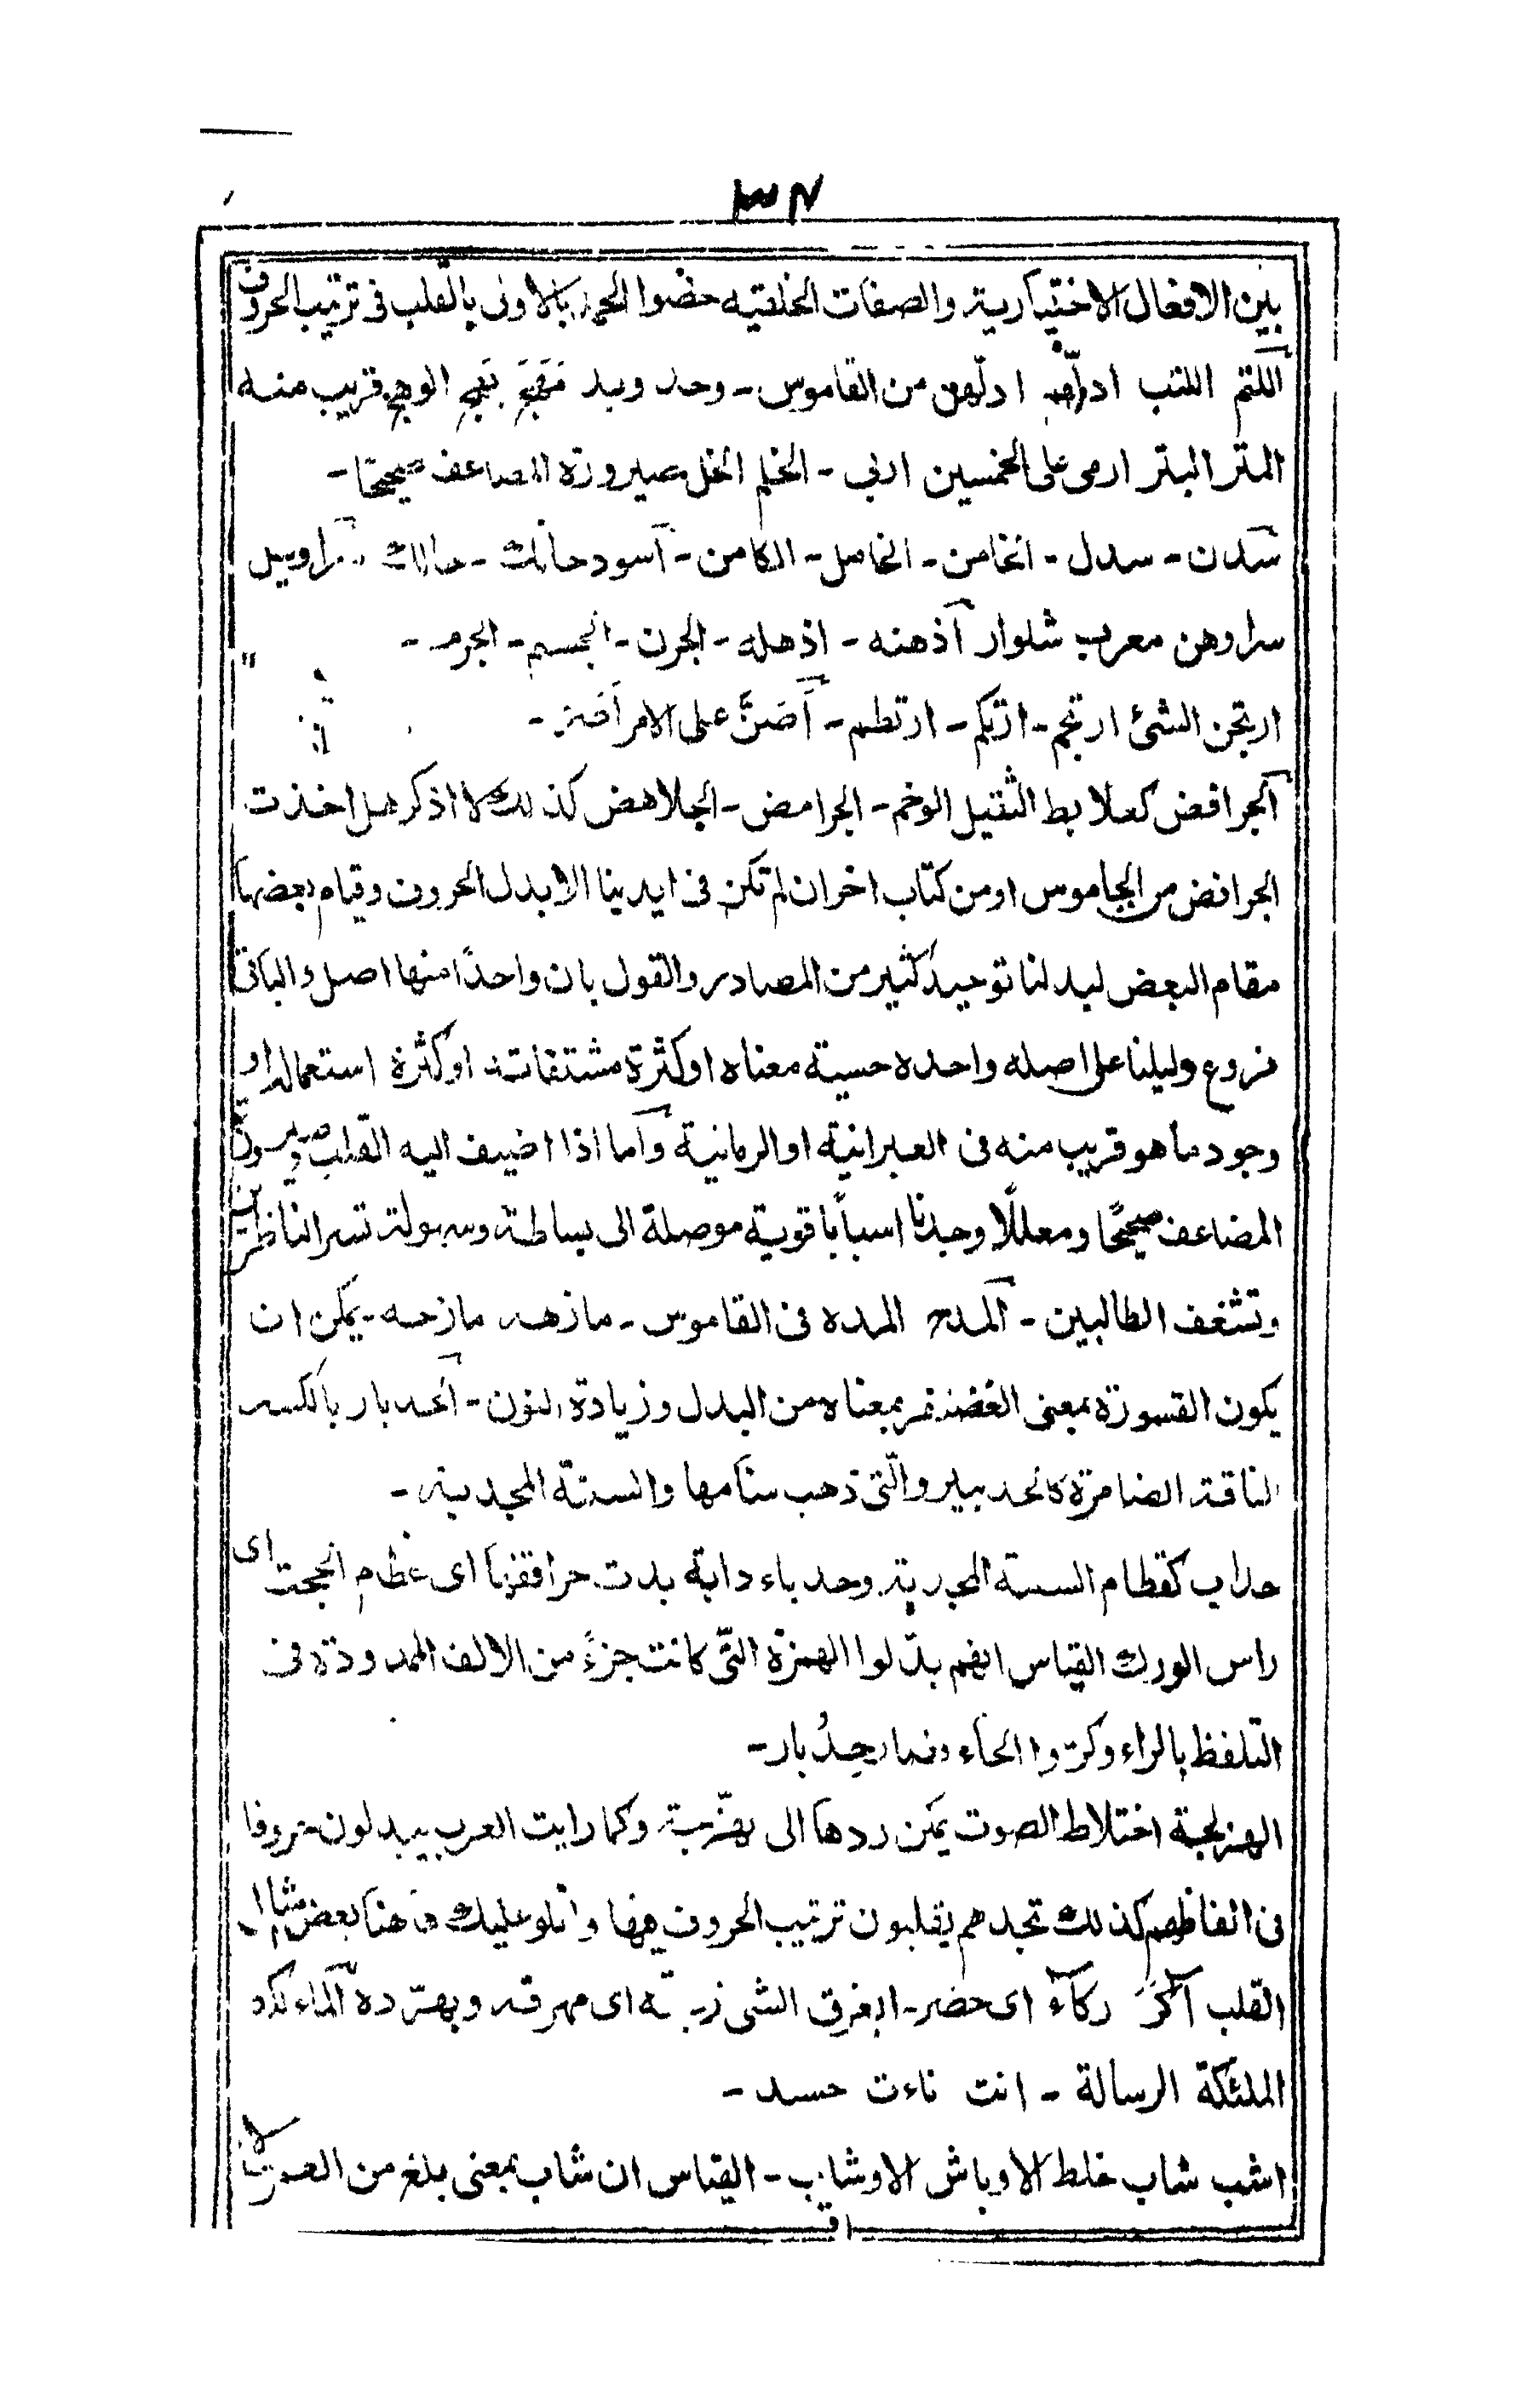 ٣٤
بين الافعال الاختيارية والصفات الخلقية خضوا الحمد بالاولى بالقلب فى ترتيب الحروف
اللتم اللتب ادلهم ادلهن من القاموس - وحد وبد الوهج قريب منه
المتر البتر ارمى على الخمسين اربى - الخلم الخل صيرورة المضاعف صحيحًا -
سدن - سدل - الخامن - الخامل - الكامن - اسود حانك - حالك سراويل
سراوهن معرب شلوار آذهنه - اذهله - الجرن - الجسم - الجرم -
ارتجن الشئ ارتجم - ارتكم - ارتطم - آضنّ على الامر
الجرافض كعلابط الثقيل الوخم - الجرامض - الجلاهض كذلك لا اذكر هل اخذت
الجرافض من الجاموس او من كتاب اخر ان لم تكن فى ايدينا الا بدل الحروف وقيام بعضها
مقام البعض لبد لنا توحيد كثير من المصادر والقول بان واحدًا منها اصل والباقى
فروع وليلنا على اصله واحده حسية معناه او كثرة مشتقاته او كثرة استعماله او
وجود ما هو قريب منه فى العبرانية او الرمانية وآما اذا اضيف اليه القلب وصيرورة
المضاعف صحيحًا ومعللًا وجدنا اسبابًا قوية موصلة الى بساطة وسهولة تسر الناظرين
وتشغف الطالبين - المدح المده فى القاموس - مازهه مازحه - يمكن ان
يكون القسورة بمعنى الغضنفر بمعناه من البدل وزيادة النون - الحدبار بالكسر
الناقة الضامرة كالحدبير والّتى ذهب سنامها والسنة المجدبة -
حداب كقطام السنة المجدبة وحدباء دابة بدت حراقفها اى عظم الحجبت اى
راس الورك القياس انهم بدّلوا الهمزة التّى كانت جزءً من الالف الممدودة فى
التلفظ بالراء وكسروا الحاء فصار حِدْبار -
الهزلجة اختلاط الصوت يمكن ردها الى وكما رايت العرب يبدلون حروفا
فى الفاظهم كذلك تجدهم يقلبون ترتيب الحروف فيها واتلو عليك ههنا بعض مثال
القلب ركآء اى حضر - الشى اى مهرقه الماء لكد
الملئكة الرسالة - انت ناءت حسد -
اشب شاب خلط الاوباش الاوشاب - القياس ان شاب بمعنى بلغ من العمر